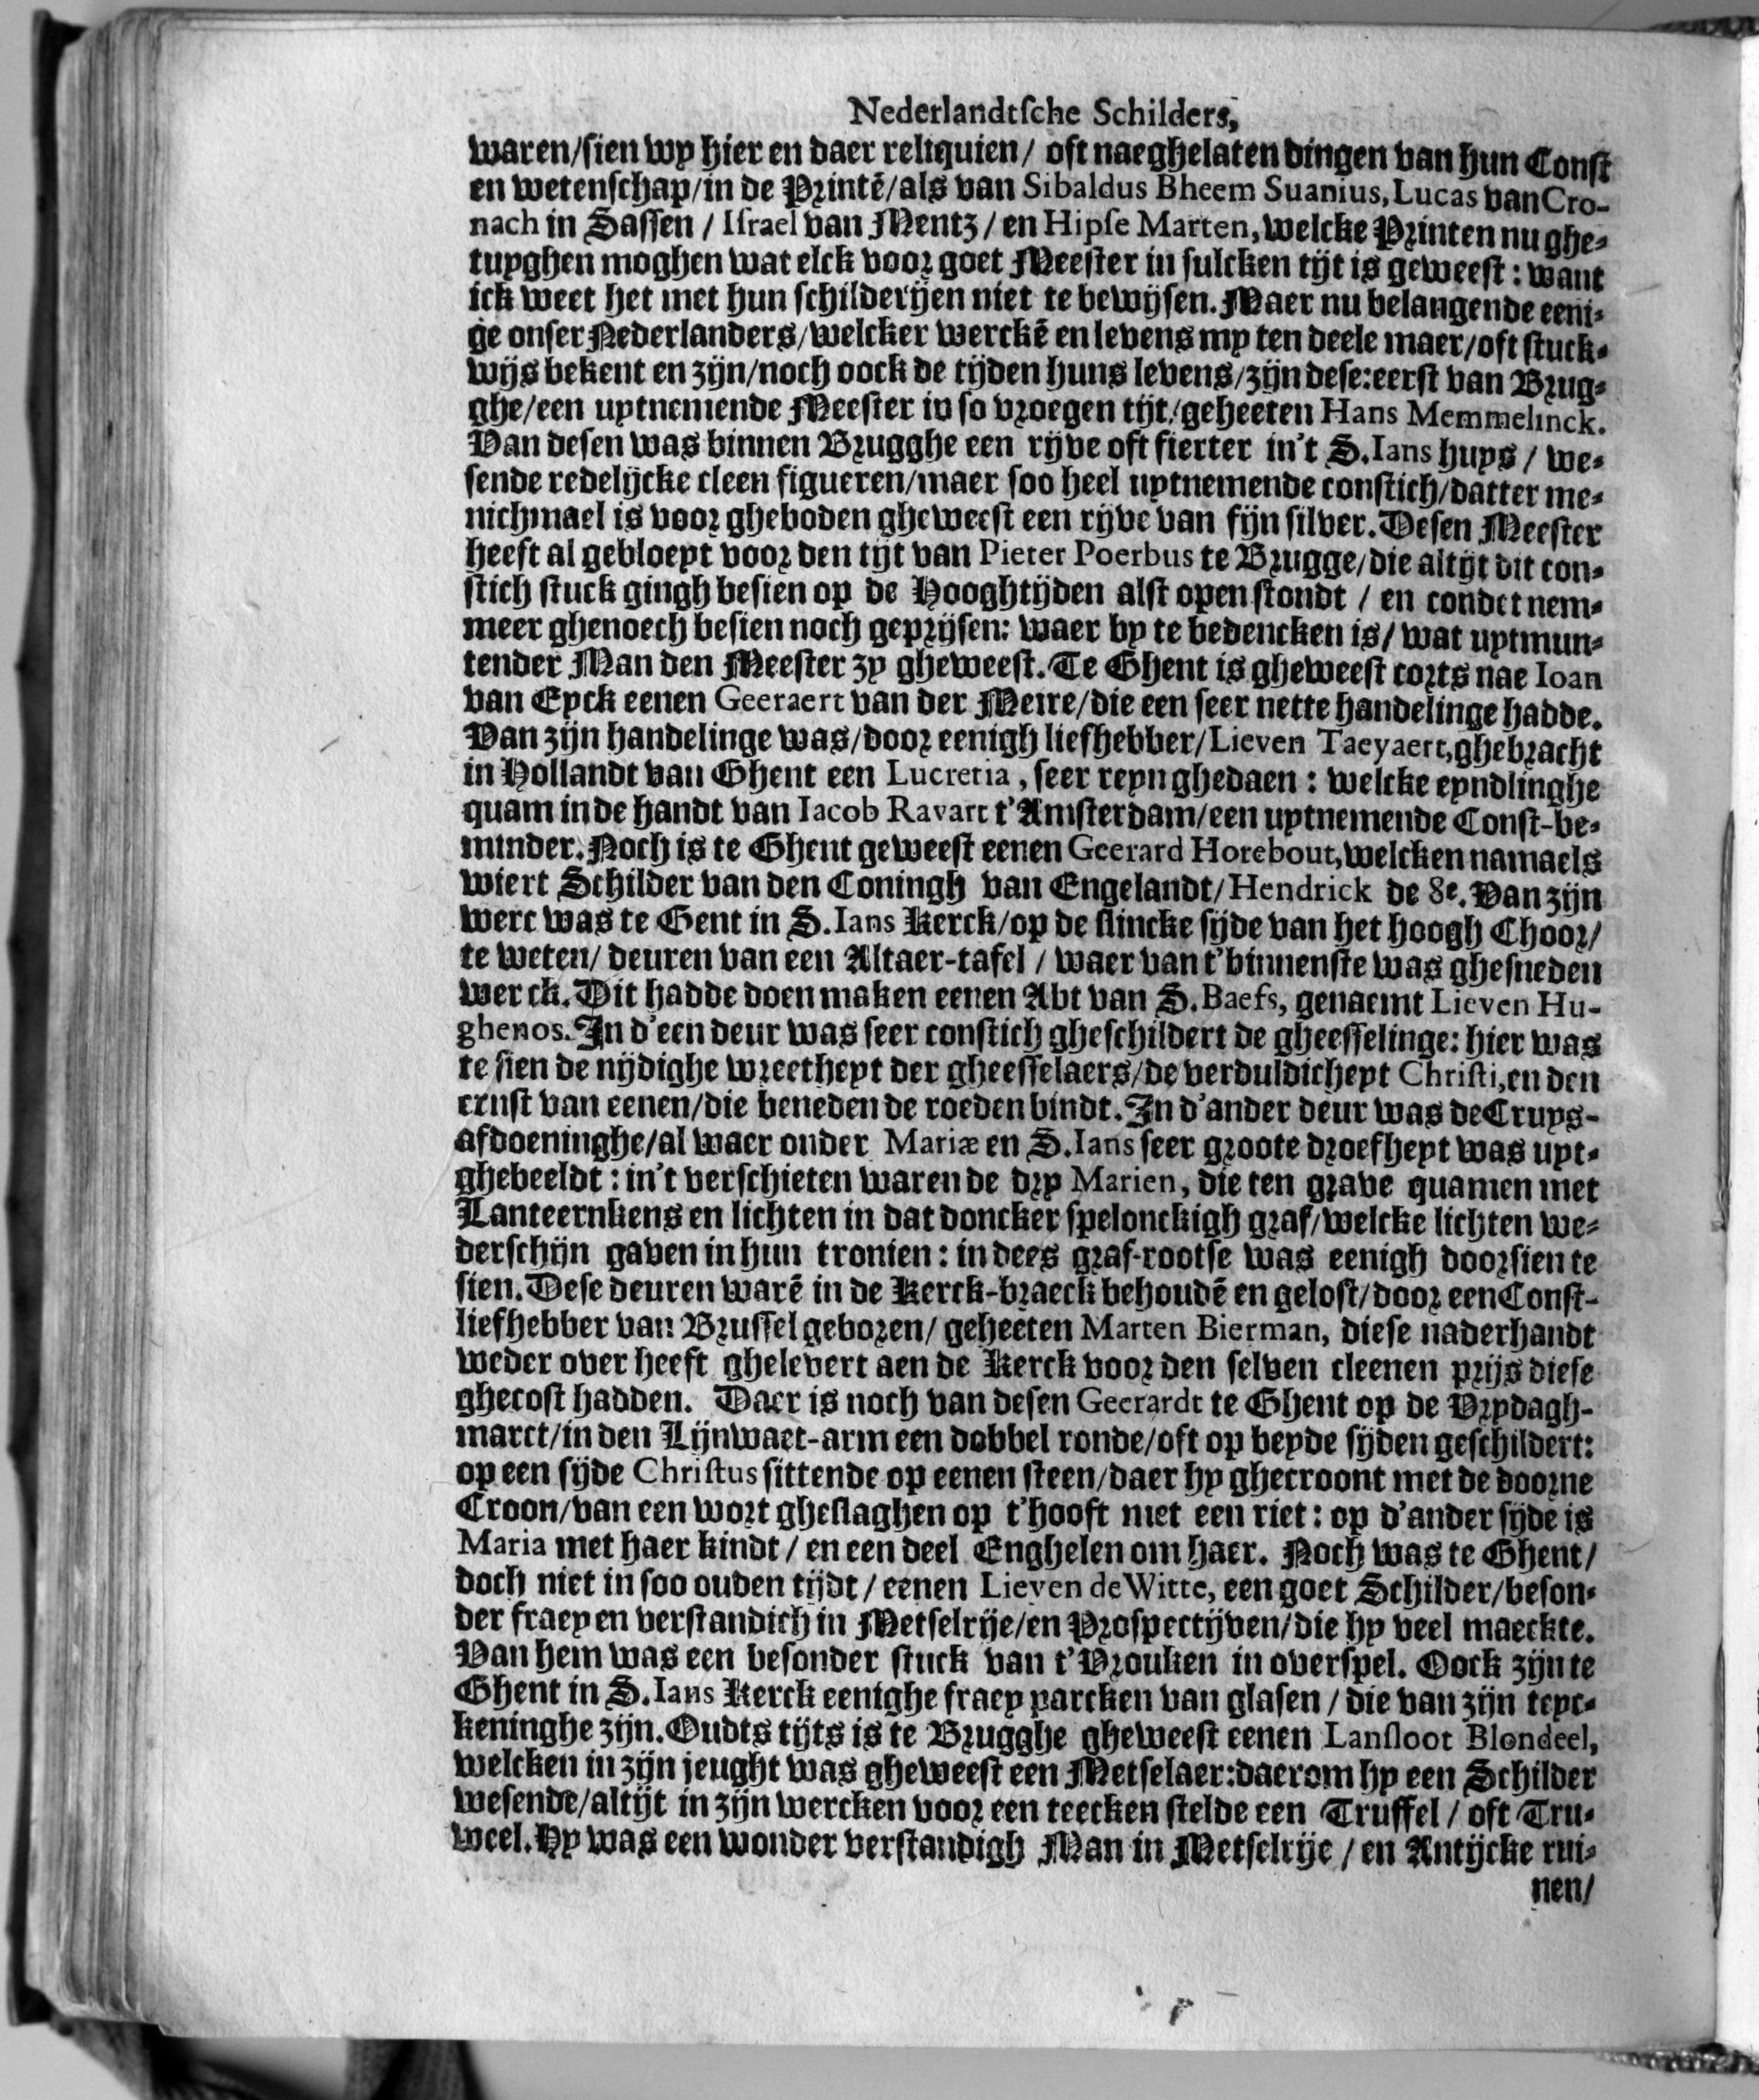 Nederlandtſche Schilders,
waren/ſien wy hier en daer reliquien/ oft naeghelaten dingen van hun Conſt
en wetenſchap/in de Printē/als van Sibaldus Bheem Suanius, Lucas van Cro-
nach in Saſſen / Iſrael van Mentz / en Hipſe Marten, welcke Printen nu ghe-
tuyghen moghen wat elck voor goet Meeſter in ſulcken tijt is geweeſt: want
ick weet het met hun ſchilderijen niet te bewijſen. Maer nu belangende eeni-
ge onſer Nederlanders/welcker werckē en levens my ten deele maer/oft ſtuck-
wijs bekent en zijn/noch oock de tijden huns levens/zijn deſe:eerſt van Brug-
ghe/een uytnemende Meeſter in ſo vroegen tijt/geheeten Hans Memmelinck.
Van deſen was binnen Brugghe een rijve oft fierter in't S.Ians huys / we-
ſende redelijcke cleen figueren/maer ſoo heel uytnemende conſtich/datter me-
nichmael is voor gheboden gheweeſt een rijve van fijn ſilver. Deſen Meeſter
heeft al gebloeyt voor den tijt van Pieter Poerbus te Brugge/die altijt dit con-
ſtich ſtuck gingh beſien op de Hooghtijden alſt open ſtondt / en condet nem-
meer ghenoech beſien noch geprijſen: waer by te bedencken is/ wat uytmun-
tender Man den Meeſter zy gheweeſt. Te Ghent is gheweeſt corts nae Ioan
van Eyck eenen Geeraert van der Meire/die een ſeer nette handelinge hadde.
Van zijn handelinge was/door eenigh liefhebber/Lieven Taeyaert,ghebracht
in Hollandt van Ghent een Lucretia, ſeer reyn ghedaen: welcke eyndlinghe
quam in de handt van Iacob Ravart t'Amſterdam/een uytnemende Conſt-be-
minder. Noch is te Ghent geweeſt eenen Geerard Horebout,welcken namaels
wiert Schilder van den Coningh van Engelandt/Hendrick de 8e. Van zijn
werc was te Gent in S.Ians Kerck/op de ſlincke ſijde van het hoogh Choor/
te weten/ deuren van een Altaer-tafel / waer van t'binnenſte was gheſneden
werck. Dit hadde doen maken eenen Abt van S. Baefs, genaemt Lieven Hu-
ghenos. In d'een deur was ſeer conſtich gheſchildert de gheeſſelinge: hier was
te ſien de nijdighe wreetheyt der gheeſſelaers/de verduldicheyt Chriſti,en den
ernſt van eenen/die beneden de roeden bindt. In d'ander deur was de Cruys-
afdoeninghe/al waer onder Mariæ en S.Ians ſeer groote droefheyt was uyt-
ghebeeldt: in't verſchieten waren de dry Marien, die ten grave quamen met
Lanteernkens en lichten in dat doncker ſpelonckigh graf/welcke lichten we-
derſchijn gaven in hun tronien: in dees graf-rootſe was eenigh doorſien te
ſien. Deſe deuren warē in de Kerck-braeck behoudē en geloſt/door een Conſt-
liefhebber van Bruſſel geboren/ geheeten Marten Bierman, dieſe naderhandt
weder over heeft ghelevert aen de Kerck voor den ſelven cleenen prijs dieſe
ghecoſt hadden. Daer is noch van deſen Geerardt te Ghent op de Vrydagh-
marct/in den Lijnwaet-arm een dobbel ronde/oft op beyde ſijden geſchildert:
op een ſijde Chriſtus ſittende op eenen ſteen/daer hy ghecroont met de doorne
Croon/van een wort gheſlaghen op t'hooft met een riet: op d'ander ſijde is
Maria met haer kindt / en een deel Enghelen om haer. Noch was te Ghent/
doch niet in ſoo ouden tijdt / eenen Lieven de Witte, een goet Schilder/beſon-
der fraey en verſtandich in Metſelrije/en Proſpectijven/die hy veel maeckte.
Van hem was een beſonder ſtuck van t'Vrouken in overſpel. Oock zijn te
Ghent in S.Ians Kerck eenighe fraey parcken van glaſen / die van zijn teyc-
keninghe zijn. Oudts tijts is te Brugghe gheweeſt eenen Lanſloot Blondeel,
welcken in zijn jeught was gheweeſt een Metſelaer:daerom hy een Schilder
weſende/altijt in zijn wercken voor een teecken ſtelde een Truffel / oft Tru-
weel. Hy was een wonder verſtandigh Man in Metſelrije / en Antijcke rui-
nen/